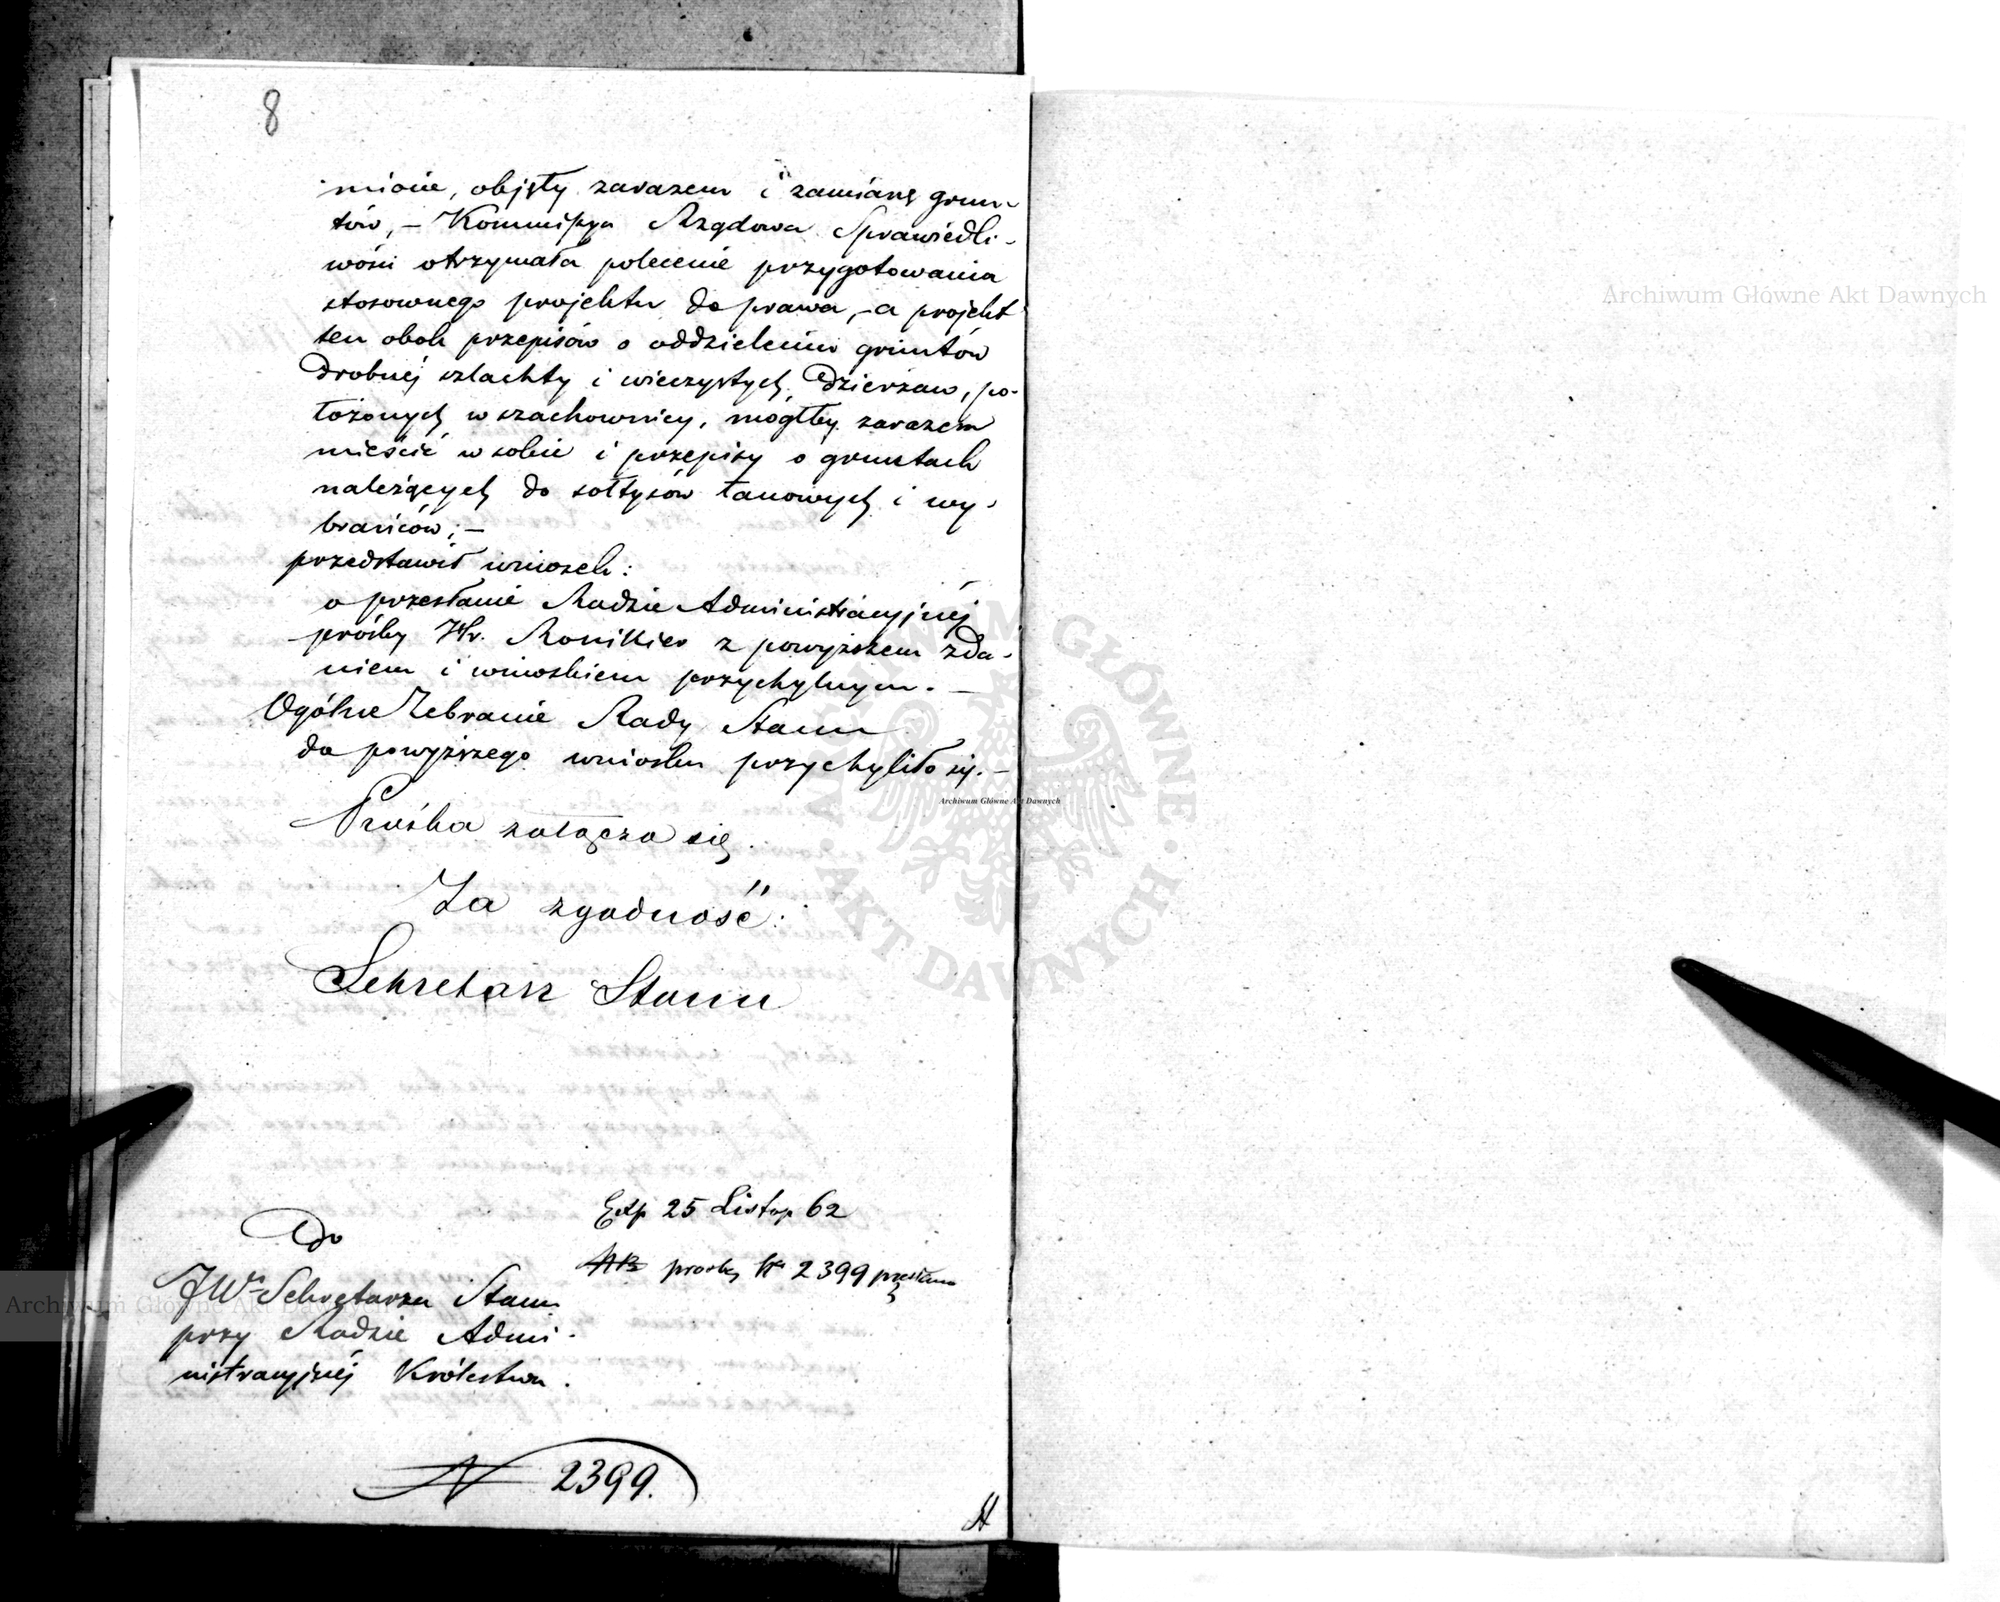 8
mionie, objęły zarazem i zamianę grun-
tów, – Kommissya Rządowa Sprawiedli-
wości otrzymała polecenie przygotowania
stosownego projektu do prawa, – a projekt
ten obok przepisów o oddzieleniu gruntów
drobnéj szlachty i wieczystych dzierżaw, po-
łożonych w szachownicy, mógłby zarazem
mieścić w sobie i przepisy o gruntach
należących do sołtysów łanowych i wy-
brańców; –
przedstawił wniosek:
o przesłanie Radzie Administracyjnéj
prośby Hr. Ronikier z powyższem zda-
niem i wnioskiem przychylnym. –
Ogólne Zebranie Rady Stanu
do powyższego wniosku przychyliło się. –
Prośba załącza się.
Za zgodność:
Sekretarz Stanu
Exp 25 Listop 62
prośbę Nr 2399 przesłano
Do
JW Sekretarza Stanu
przy Radzie Admi-
nistracyjnéj Królestwa.
N 2399.
Archiwum Główne Akt Dawnych
Archiwum Główne Akt Dawnych
Archiwum Główne Akt Dawnych
ARCHIWUM GŁÓWNE AKT DAWNYCH